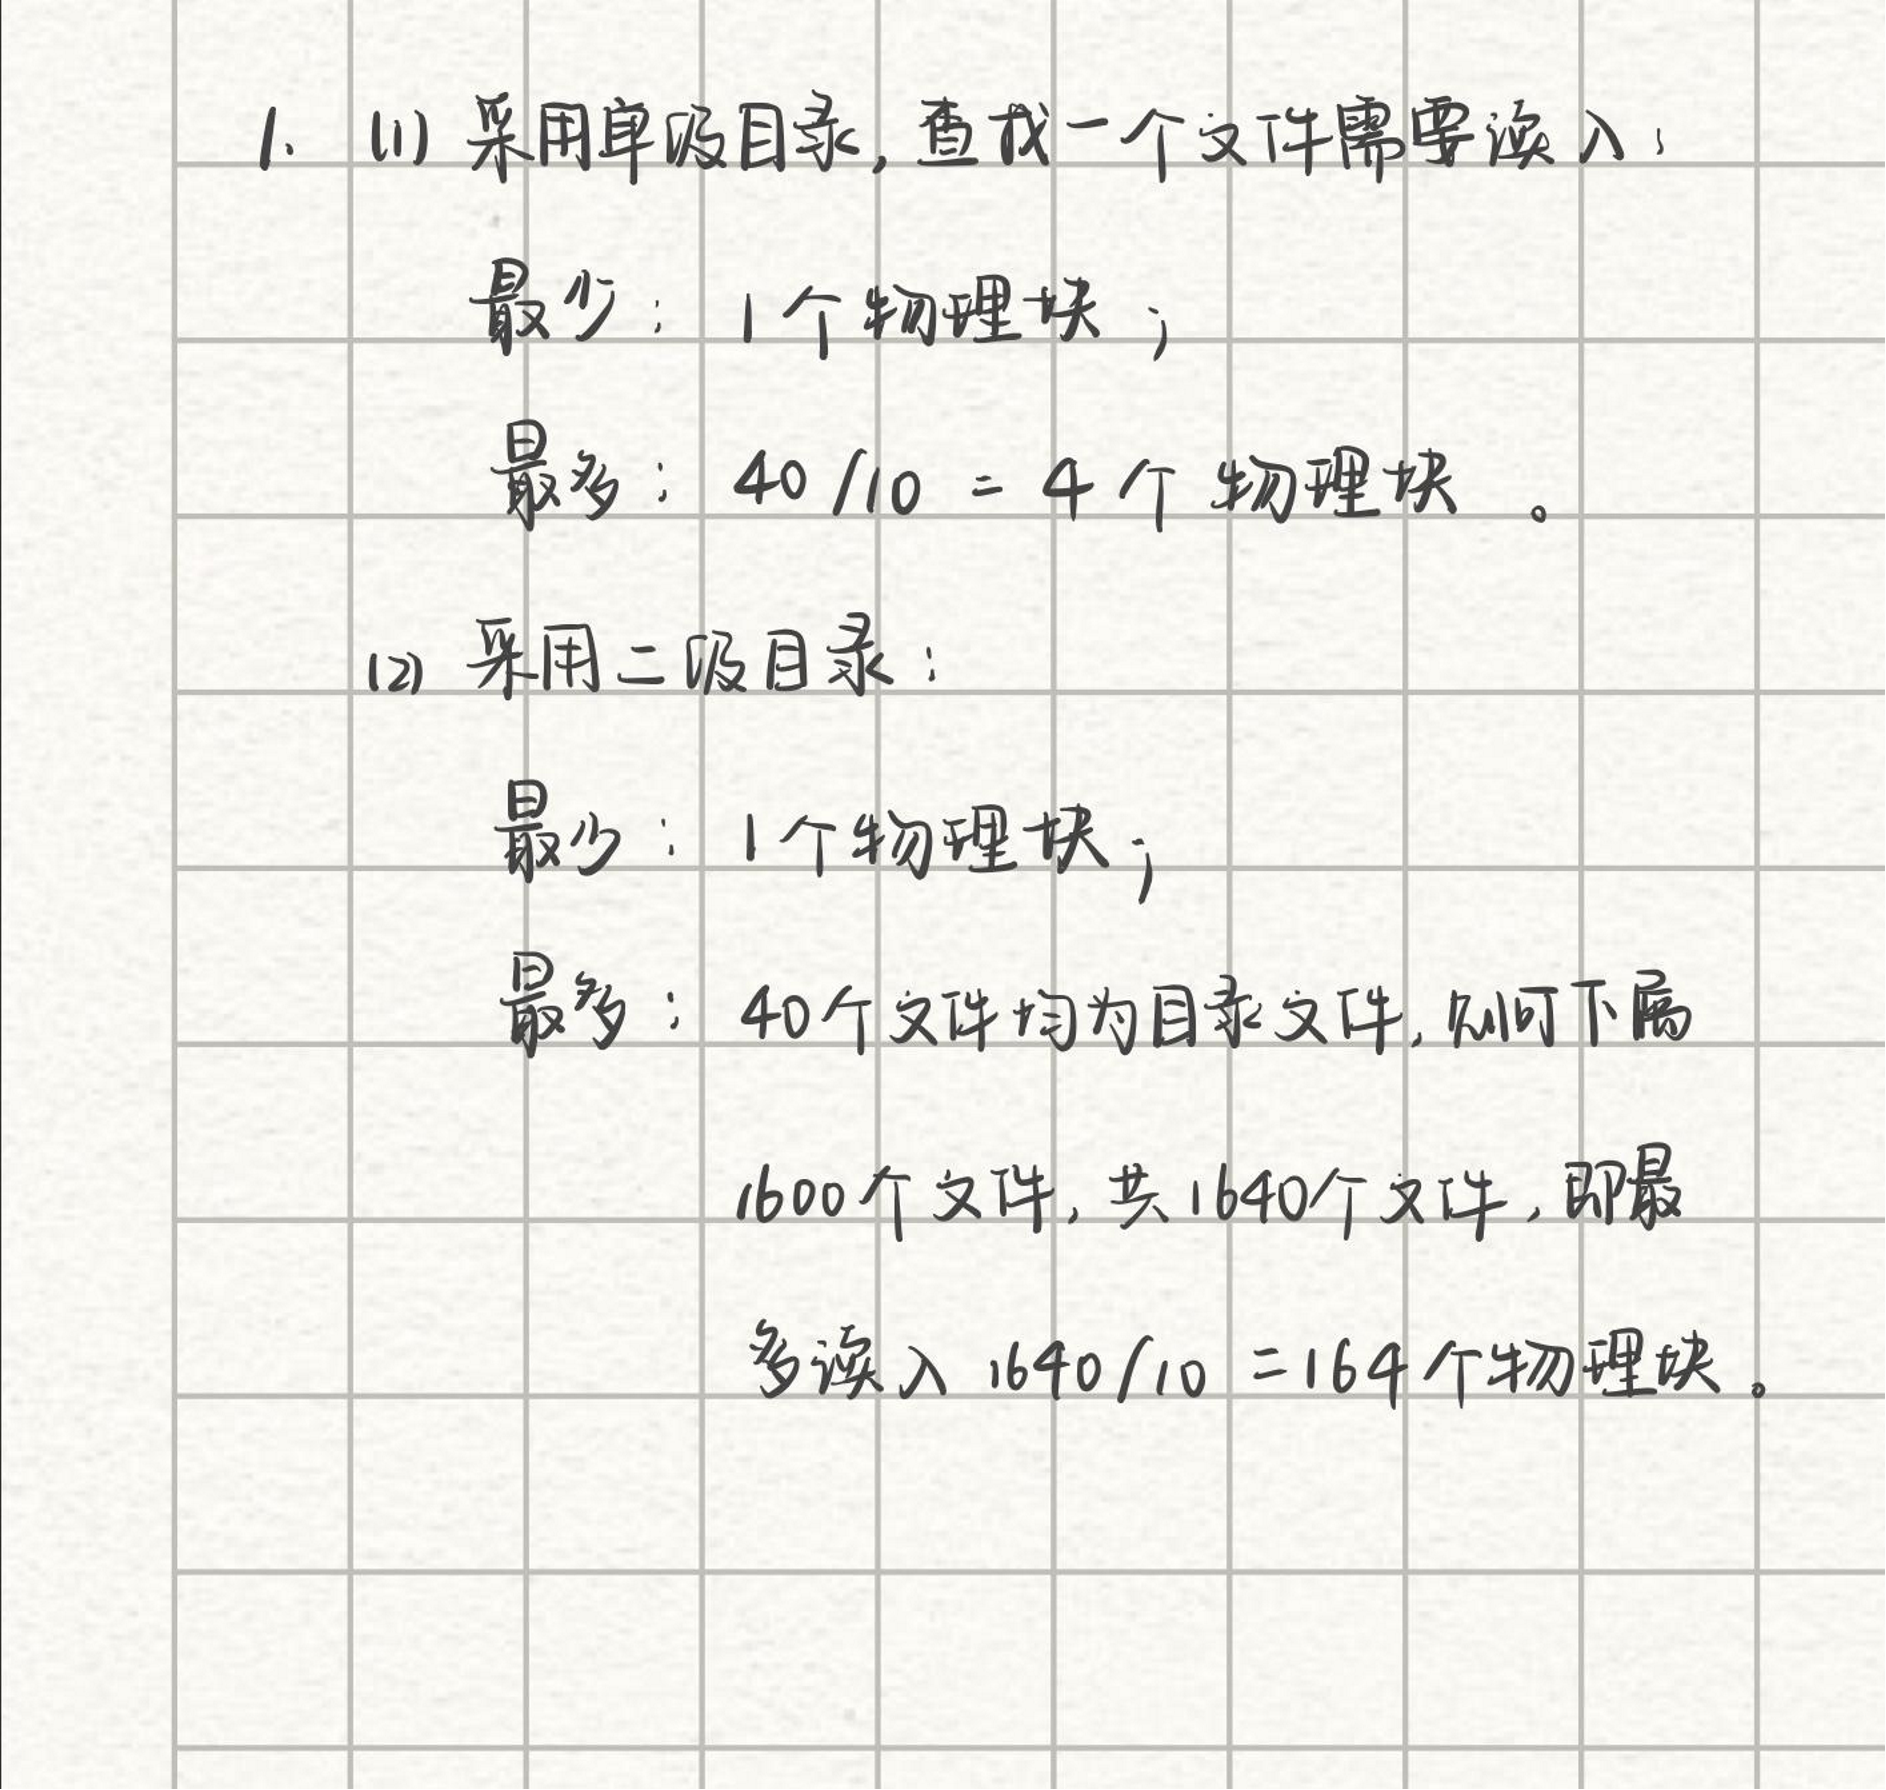 1. (1) 采用单级目录,查找一个文件需要读入:
最少: 1个物理块;
最多: 40/10 = 4个物理块。
(2) 采用二级目录:
最少: 1个物理块;
最多: 40个文件均为目录文件,则可下属
1600个文件,共1640个文件,即最
多读入 1640/10 =164个物理块。